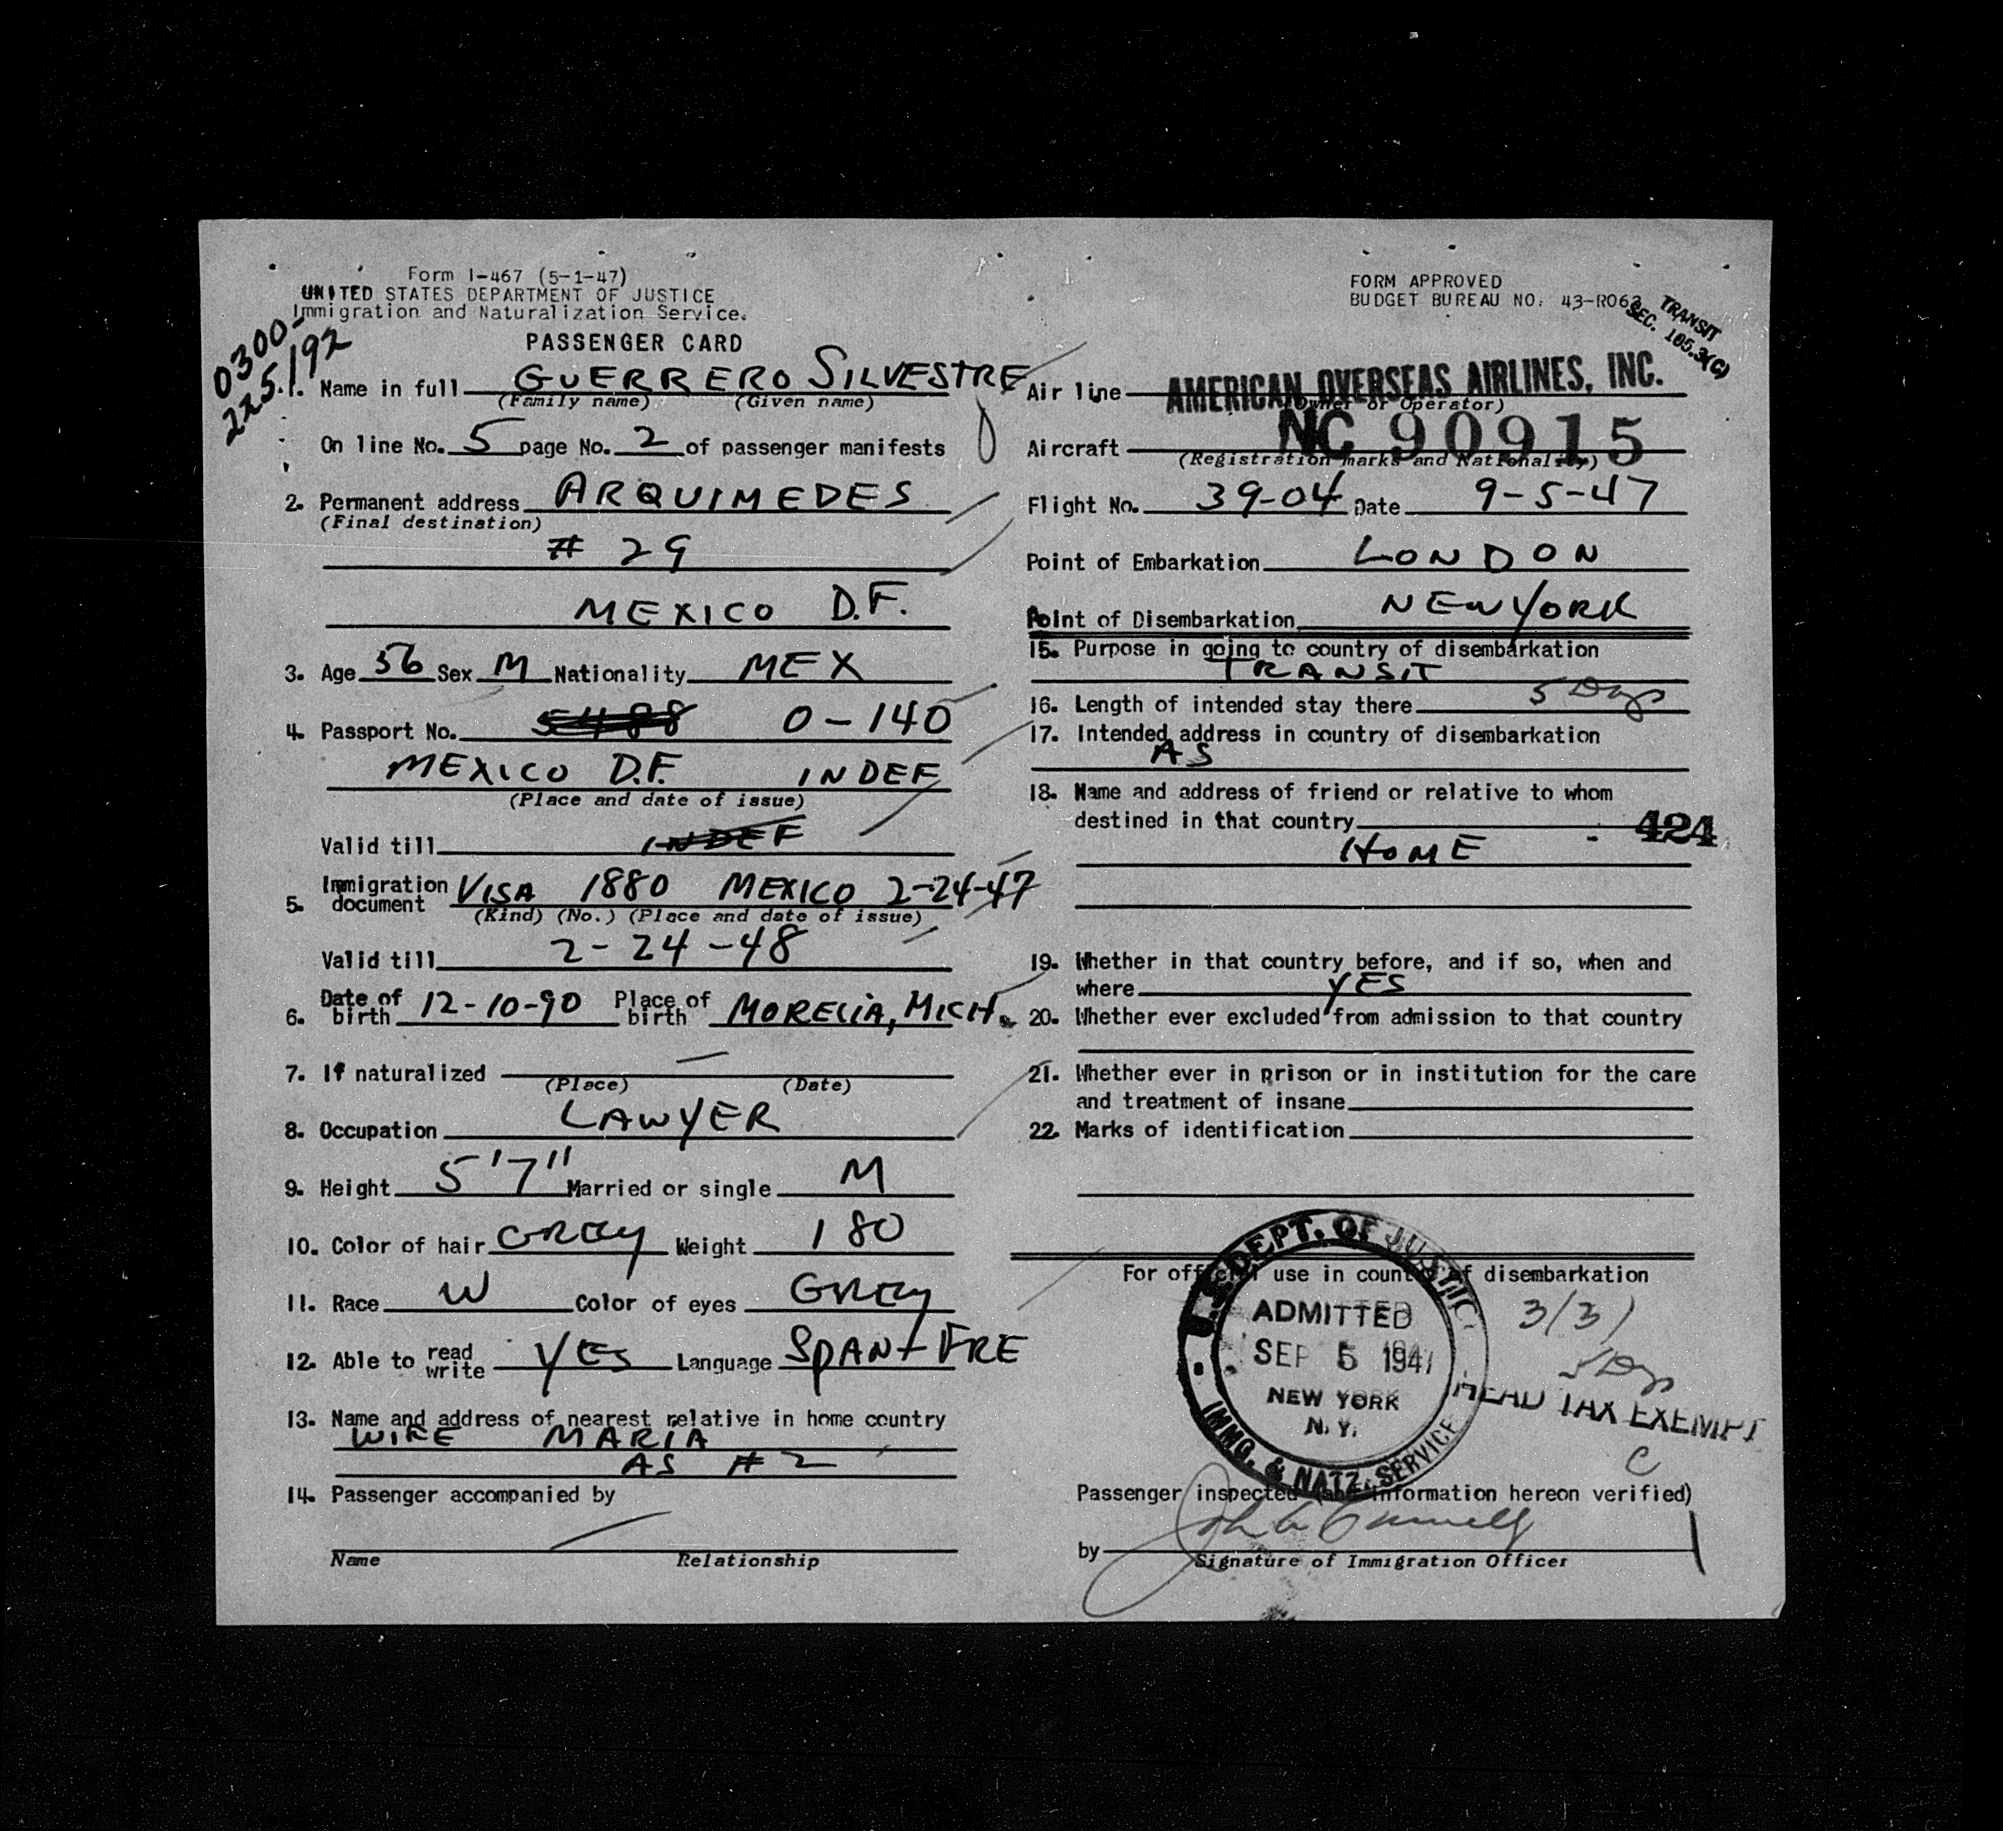 Form I-467 (5-1-47)
UNITED STATES DEPARTMENT OF JUSTICE
Immigration and Naturalization Service.
PASSENGER CARD
0300-
225.192
1. Name in full GUERRERO SILVESTRE
(Family name) (Given name)
On line No. 5 page No. 2 of passenger manifests
2. Permanent address ARQUIMEDES
(Final destination)
# 29
MEXICO D.F.
3. Age 56 Sex M Nationality MEX
4. Passport No. 5488 0-140
MEXICO D.F. INDEF
(Place and date of issue)
Valid till INDEF
5. Immigration document VISA 1880 MEXICO 2-24-47
(Kind) (No.) (Place and date of issue)
Valid till 2-24-48
6. Date of birth 12-10-90 Place of birth MORELIA, MICH.
7. If naturalized —
(Place) (Date)
8. Occupation LAWYER
9. Height 5'7" Married or single M
10. Color of hair GREY Weight 180
11. Race W Color of eyes GREY
12. Able to read write YES Language SPAN + FRE
13. Name and address of nearest relative in home country
WIFE MARIA
AS # 2
14. Passenger accompanied by
Name Relationship
FORM APPROVED
BUDGET BUREAU NO. 43-R063
TRANSIT
SEC. 105.3(C)
Air line AMERICAN OVERSEAS AIRLINES, INC.
(Owner or Operator)
Aircraft NC 90915
(Registration marks and Nationality)
Flight No. 39-04 Date 9-5-47
Point of Embarkation LONDON
Point of Disembarkation NEW YORK
15. Purpose in going to country of disembarkation
TRANSIT
16. Length of intended stay there 5 Days
17. Intended address in country of disembarkation
AS
18. Name and address of friend or relative to whom
destined in that country 424
HOME
19. Whether in that country before, and if so, when and
where YES
20. Whether ever excluded from admission to that country
21. Whether ever in prison or in institution for the care
and treatment of insane
22. Marks of identification
For official use in country of disembarkation
U.S. DEPT. OF JUSTICE
ADMITTED
SEP 5 1947
NEW YORK
N.Y.
IMMG. & NATZ. SERVICE
3/31
5 Days
HEAD TAX EXEMPT
C
Passenger inspected (and information hereon verified)
by
Signature of Immigration Officer